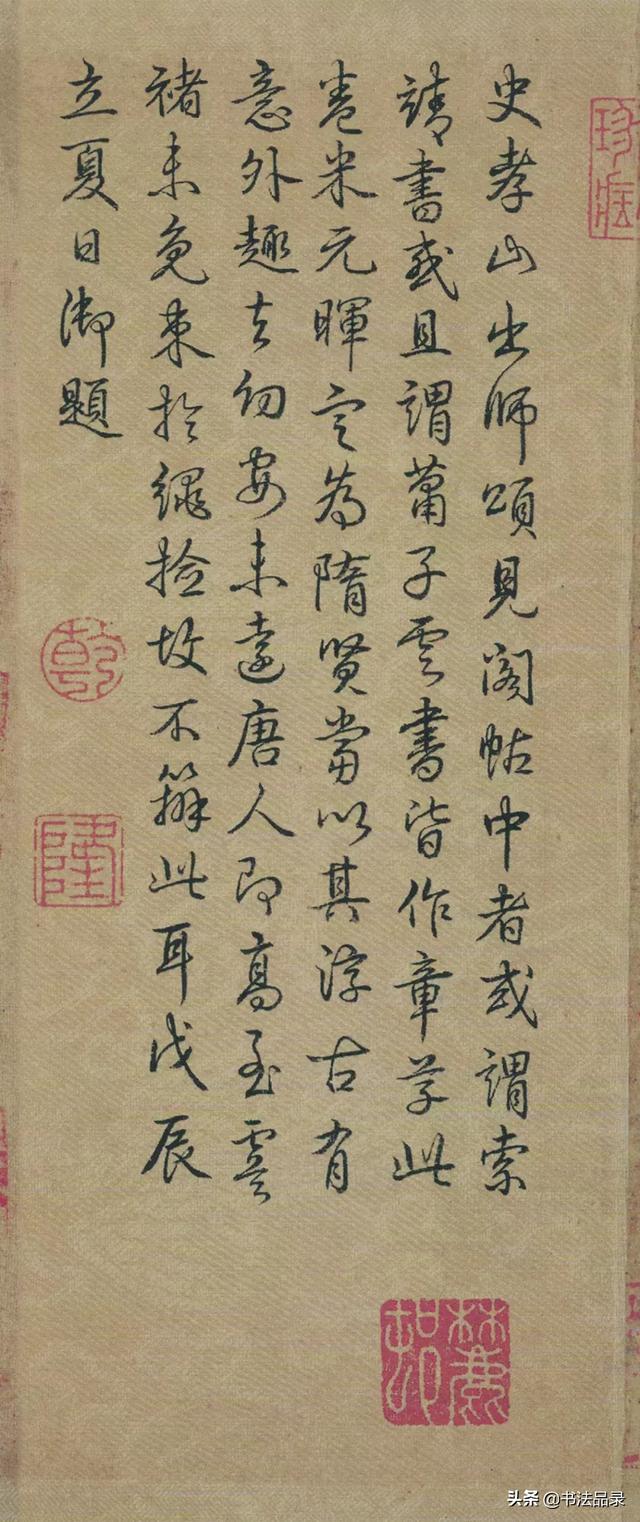 史孝山出師頌見閣帖中者或謂索
靖書或且謂蕭子雲書皆作章草此
卷米元暉定為隋賢當以其淳古有
意外趣去幼安未遠唐人即高至虞
褚未免束於繩撿故不辦此耳戊辰
立夏日御題
乾
隆
头条 @书法品录